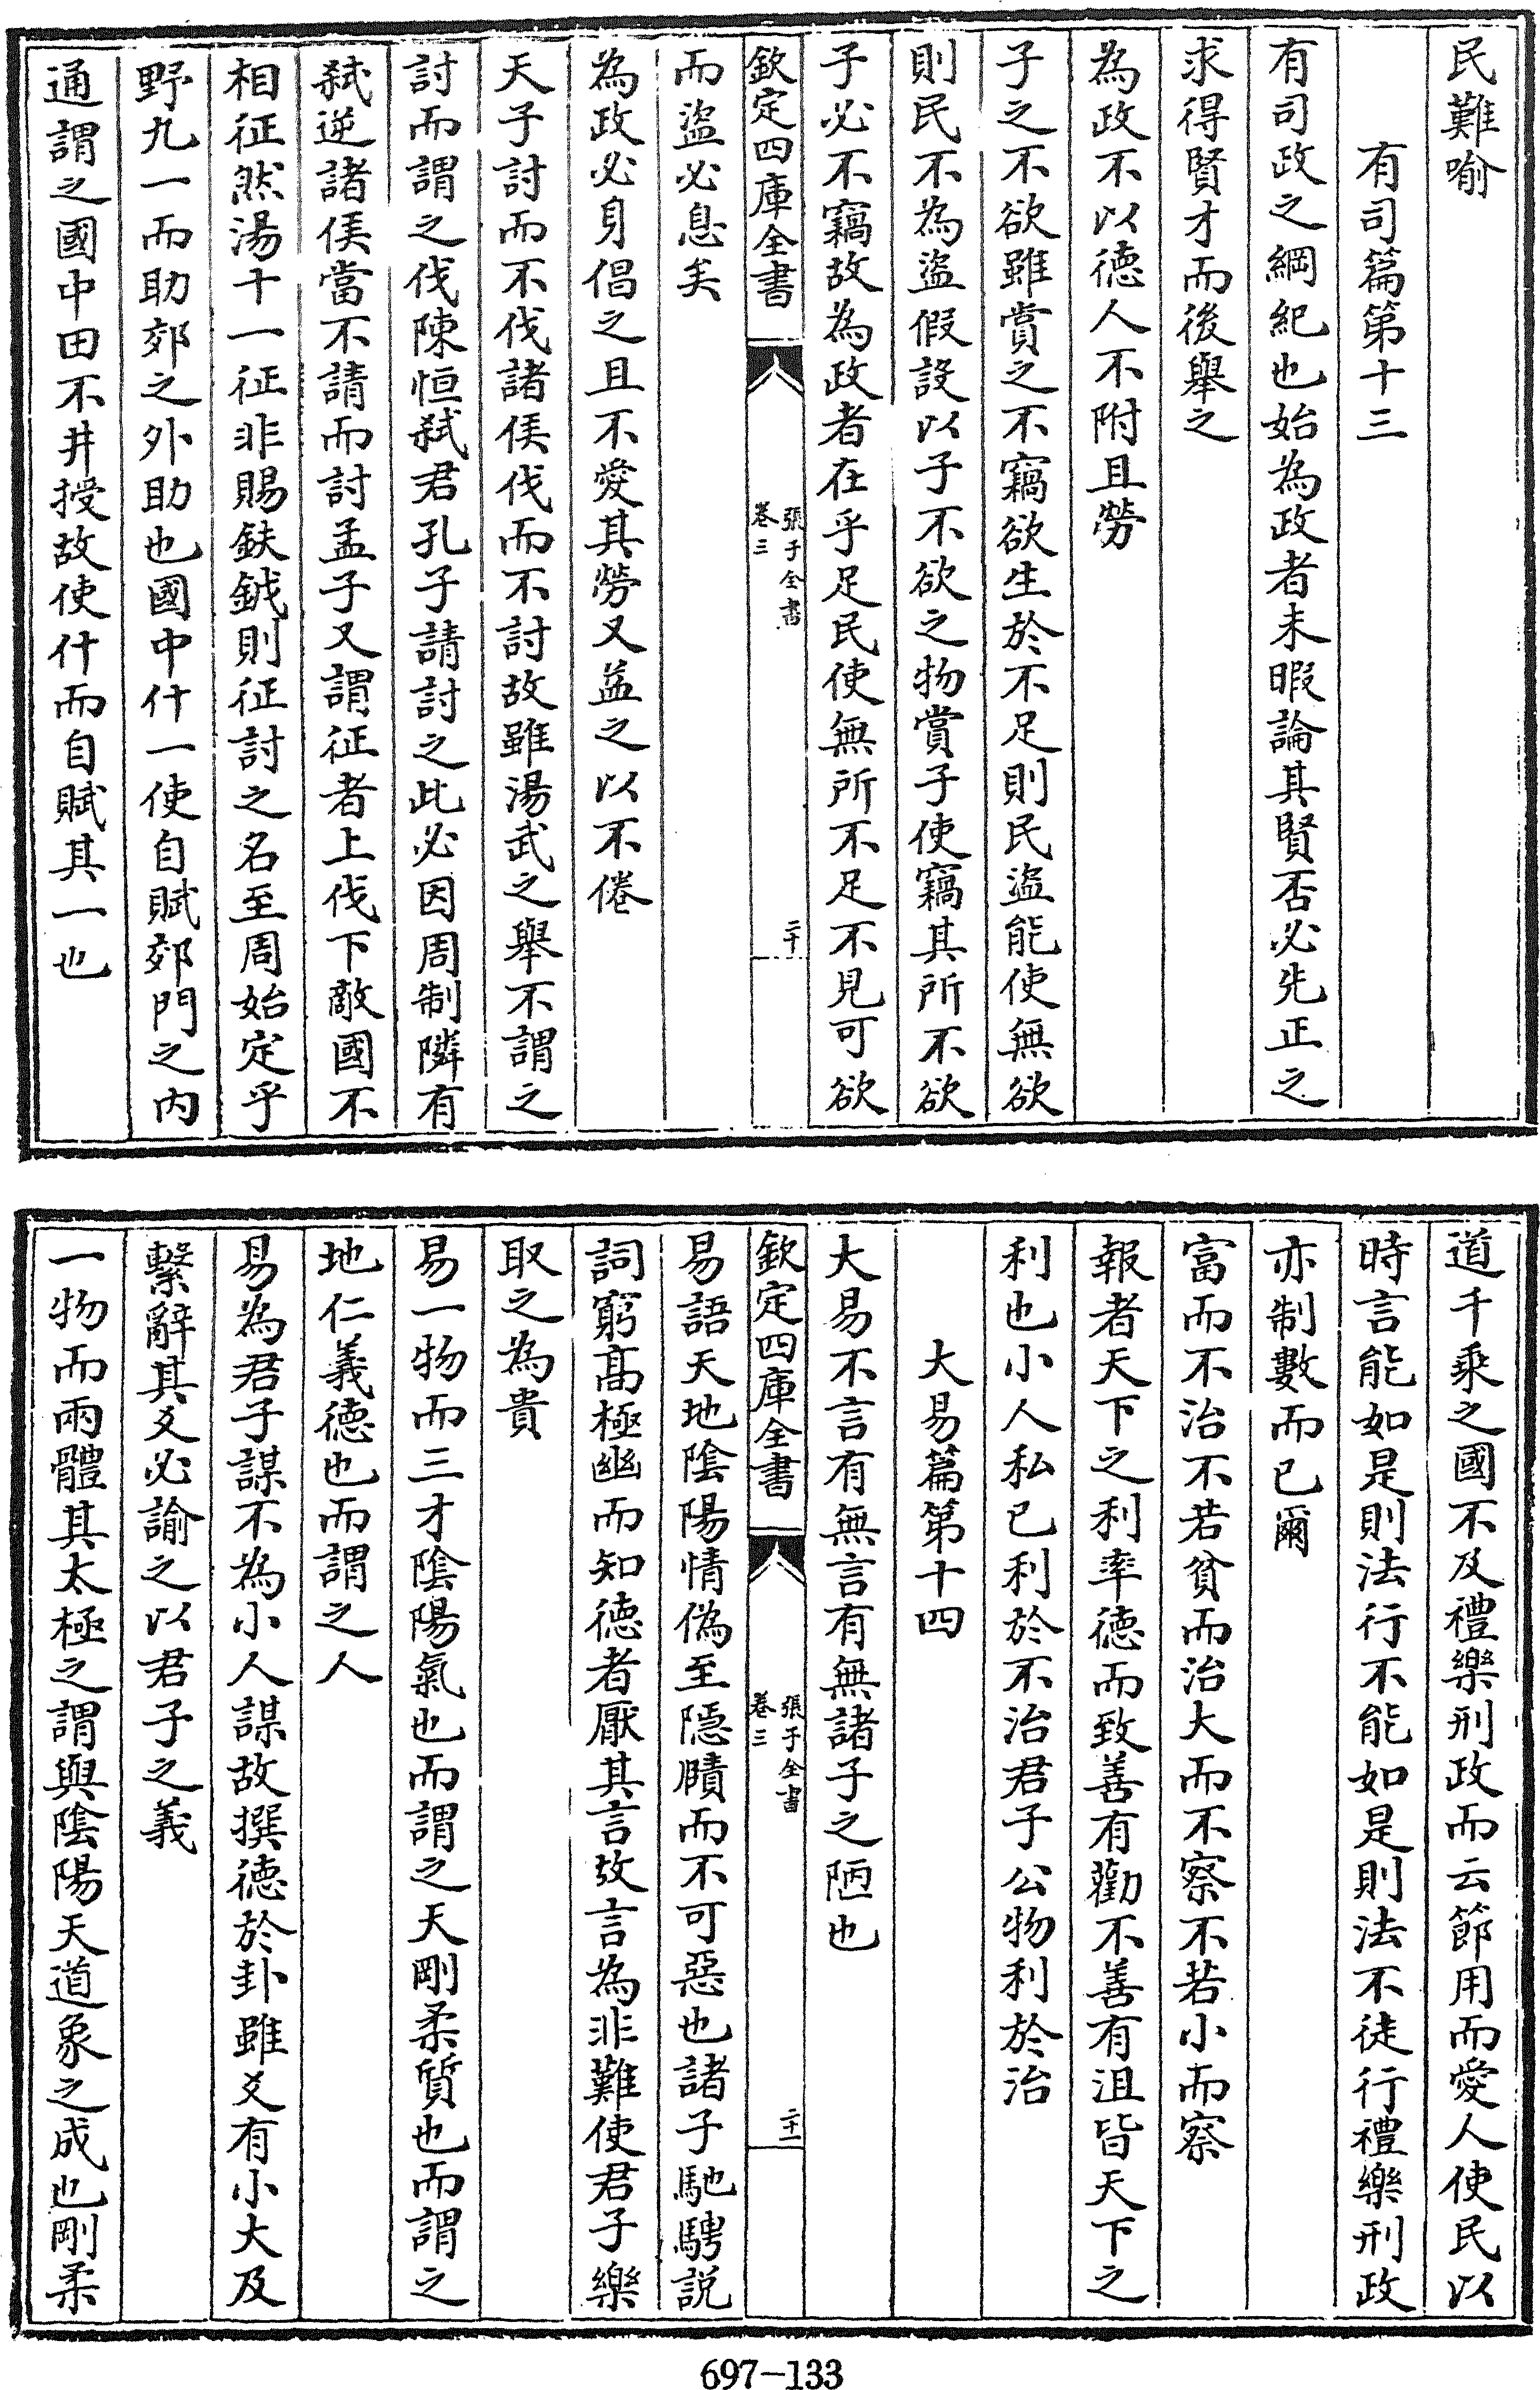 民難喻
有司篇第十三
有司政之綱紀也始為政者未暇論其賢否必先正之
求得賢才而後舉之
為政不以徳人不附且勞
子之不欲雖賞之不竊欲生於不足則民盜能使無欲
則民不為盜假設以子不欲之物賞子使竊其所不欲
子必不竊故為政者在乎足民使無所不足不見可欲
欽定四庫全書
張子全書
卷三
二十
而盜必息矣
為政必身倡之且不愛其勞又益之以不倦
天子討而不伐諸侯伐而不討故雖湯武之舉不謂之
討而謂之伐陳恒弑君孔子請討之此必因周制隣有
弑逆諸侯當不請而討孟子又謂征者上伐下敵國不
相征然湯十一征非賜鈇鉞則征討之名至周始定乎
野九一而助郊之外助也國中什一使自賦郊門之内
通謂之國中田不井授故使什而自賦其一也
道千乘之國不及禮樂刑政而云節用而愛人使民以
時言能如是則法行不能如是則法不徒行禮樂刑政
亦制數而已爾
富而不治不若貧而治大而不察不若小而察
報者天下之利率徳而致善有勸不善有沮皆天下之
利也小人私已利於不治君子公物利於治
大易篇第十四
大易不言有無言有無諸子之陋也
欽定四庫全書
張子全書
卷三
二十一
易語天地陰陽情偽至隠賾而不可惡也諸子馳騁説
詞窮髙極幽而知徳者厭其言故言為非難使君子樂
取之為貴
易一物而三才陰陽氣也而謂之天剛柔質也而謂之
地仁義徳也而謂之人
易為君子謀不為小人謀故撰徳於卦雖爻有小大及
繫辭其爻必諭之以君子之義
一物而兩體其太極之謂與陰陽天道象之成也剛柔
697-133